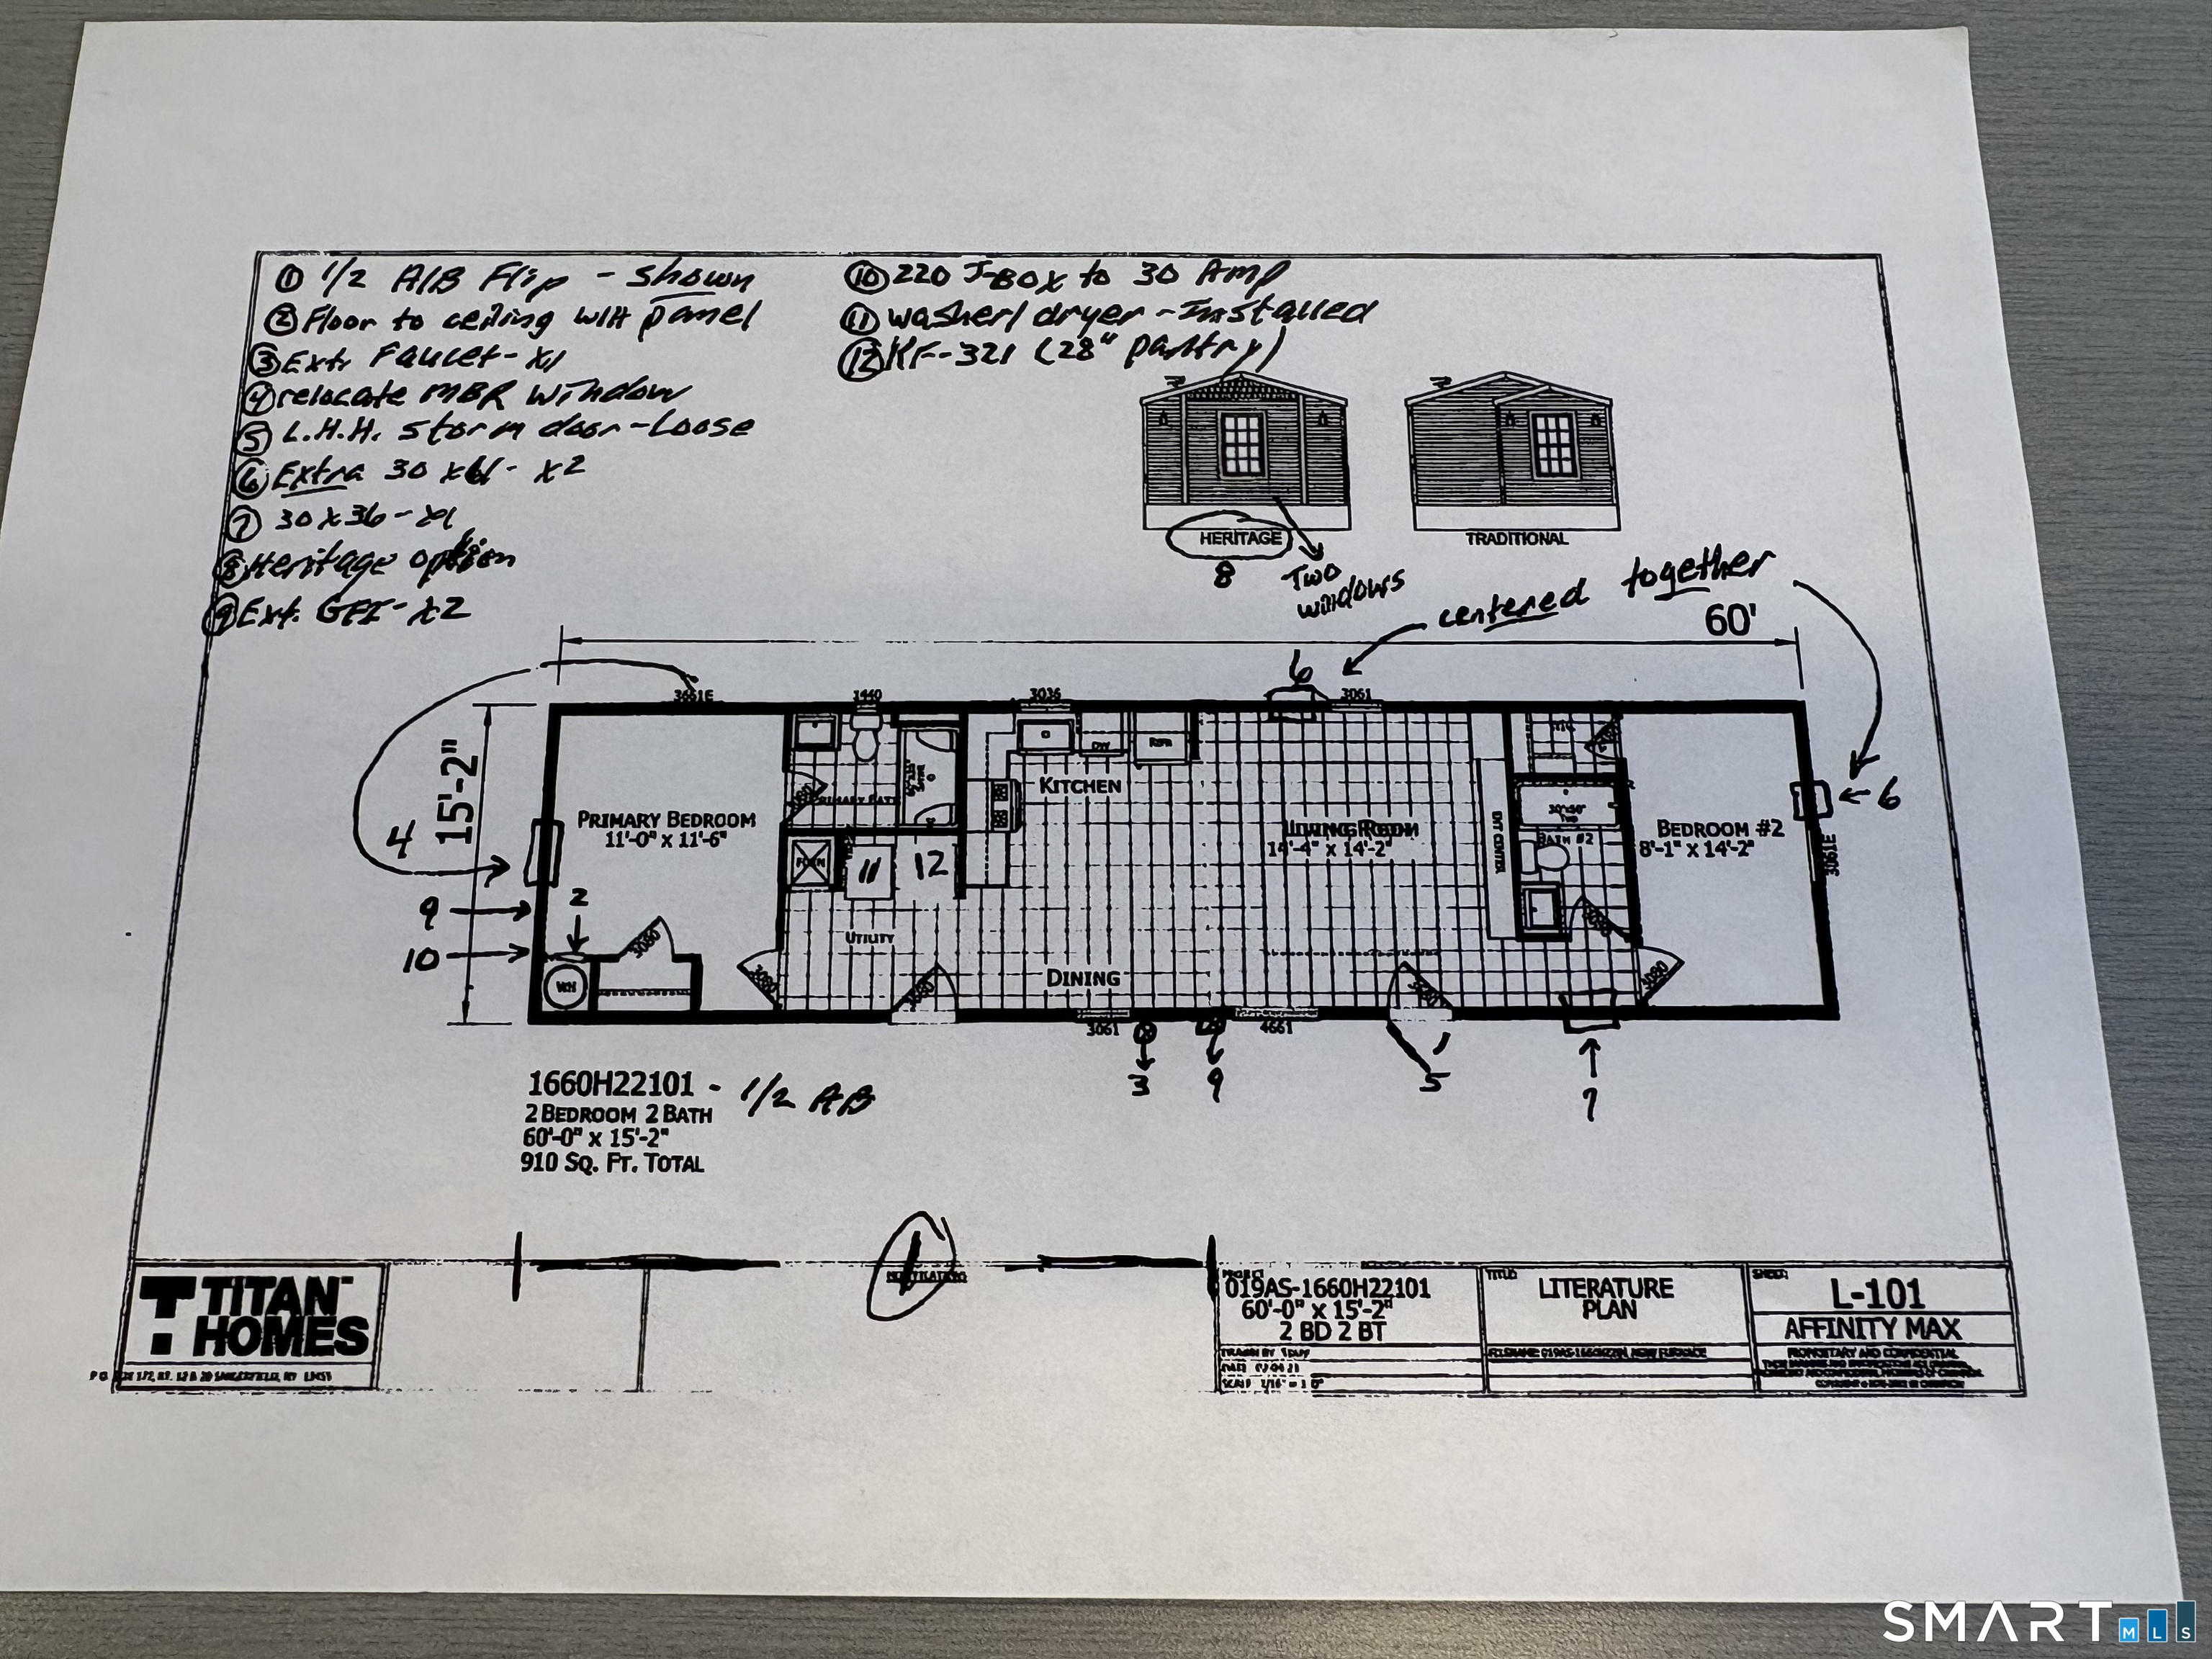 ① 1/2 A/B Flip - shown
② Floor to ceiling W/H panel
③ Ext. Faucet - x1
④ relocate MBR window
⑤ L.H.H. storm door - Loose
⑥ Extra 30 x 61 - x2
⑦ 30 x 36 - x1
⑧ Heritage option
⑨ Ext. GFI - x2
⑩ 220 J-Box to 30 Amp
⑪ washer/dryer - Installed
⑫ KF-321 (28" pantry)
HERITAGE
TRADITIONAL
8
Two windows
centered together
60'
15'-2"
3661E
1440
3036
6
3061
4
9
10
2
PRIMARY BEDROOM
11'-0" X 11'-6"
PRIMARY BATH
FURN
11
12
KITCHEN
DW
REFR
UTILITY
DINING
LIVING ROOM
14'-4" X 14'-2"
ENT CENTER
BATH #2
BEDROOM #2
8'-1" X 14'-2"
6
3061E
WH
3080
3080
3080
3080
3061
4661
3
9
5
7
1660H22101 - 1/2 AB
2 BEDROOM 2 BATH
60'-0" X 15'-2"
910 SQ. FT. TOTAL
1
TITAN HOMES
PROJECT:
019AS-1660H22101
60'-0" X 15'-2"
2 BD 2 BT
TITLE:
LITERATURE PLAN
SHEET:
L-101
AFFINITY MAX
PROPRIETARY AND CONFIDENTIAL
SMART MLS